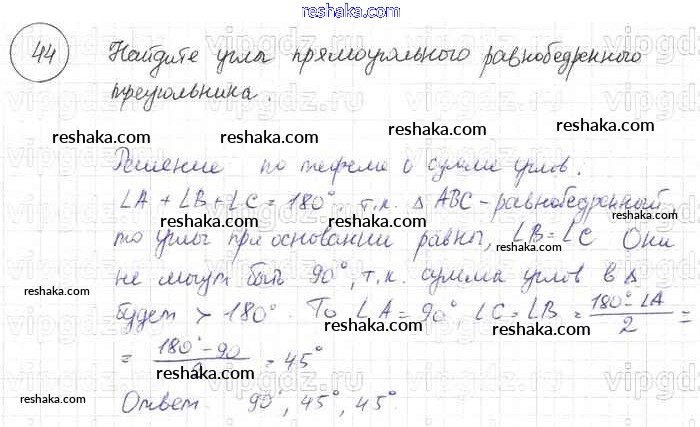 reshaka.com
44 Найдите углы прямоугольного равнобедренного
треугольника.
reshaka.com reshaka.com reshaka.com
Решение по теореме о сумме углов.
reshaka.com reshaka.com
∠A + ∠B + ∠C = 180°, т.к. Δ ABC - равнобедренный
reshaka.com
то углы при основании равны, ∠B = ∠C Они
reshaka.com reshaka.com
не могут быть 90°, т.к. сумма углов в Δ
reshaka.com
будет > 180°. То ∠A = 90° ∠C = ∠B = 180° - ∠A / 2 =
reshaka.com reshaka.com
= 180° - 90 / 2 = 45°
reshaka.com reshaka.com
Ответ 90°, 45°, 45°.
reshaka.com reshaka.com